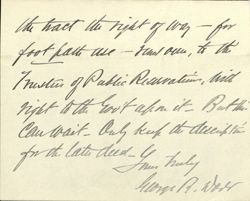 the tract the right of way – for
foot path use – running, to the
Trustees of Public Reservations, with
right to the Gov't upon it – But this
can wait – Only keep the description
for the later deed –
Yours truly
George R.